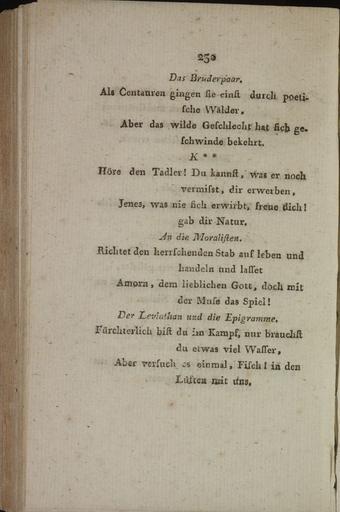 230
Das Brüderpaar.
Als Centauren gingen ſie einſt durch poeti-
ſche Wälder,
Aber das wilde Geſchlecht hat ſich ge-
ſchwinde bekehrt.
K * *
Höre den Tadler! Du kannſt, was er noch
vermiſst, dir erwerben,
Jenes, was nie ſich erwirbt, freue dich!
gab dir Natur.
An die Moraliſten.
Richtet den herrſchenden Stab auf leben und
handeln und laſſet
Amorn, dem lieblichen Gott, doch mit
der Muſe das Spiel!
Der Leviathan und die Epigramme.
Fürchterlich biſt du im Kampf, nur brauchſt
du etwas viel Waſſer,
Aber verſuch es einmal, Fiſch! in den
Lüften mit uns,